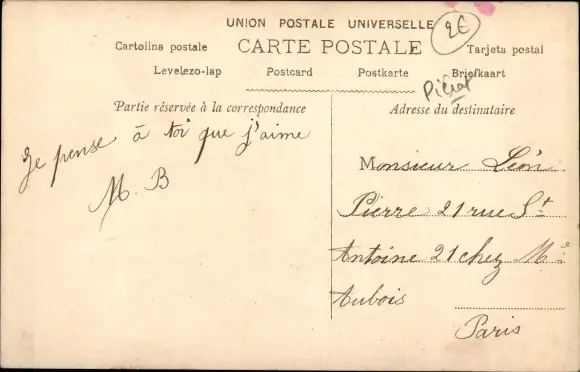 UNION POSTALE UNIVERSELLE
2€
Cartolina postale CARTE POSTALE Tarjeta postal
Levelezo-lap Postcard Postkarte Briefkaart
Partie réservée à la correspondance
Je pense à toi que j'aime
M. B
Adresse du destinataire
Monsieur Léon
Pierre 21 rue St
Antoine 21 chez Me
Aubois
Paris